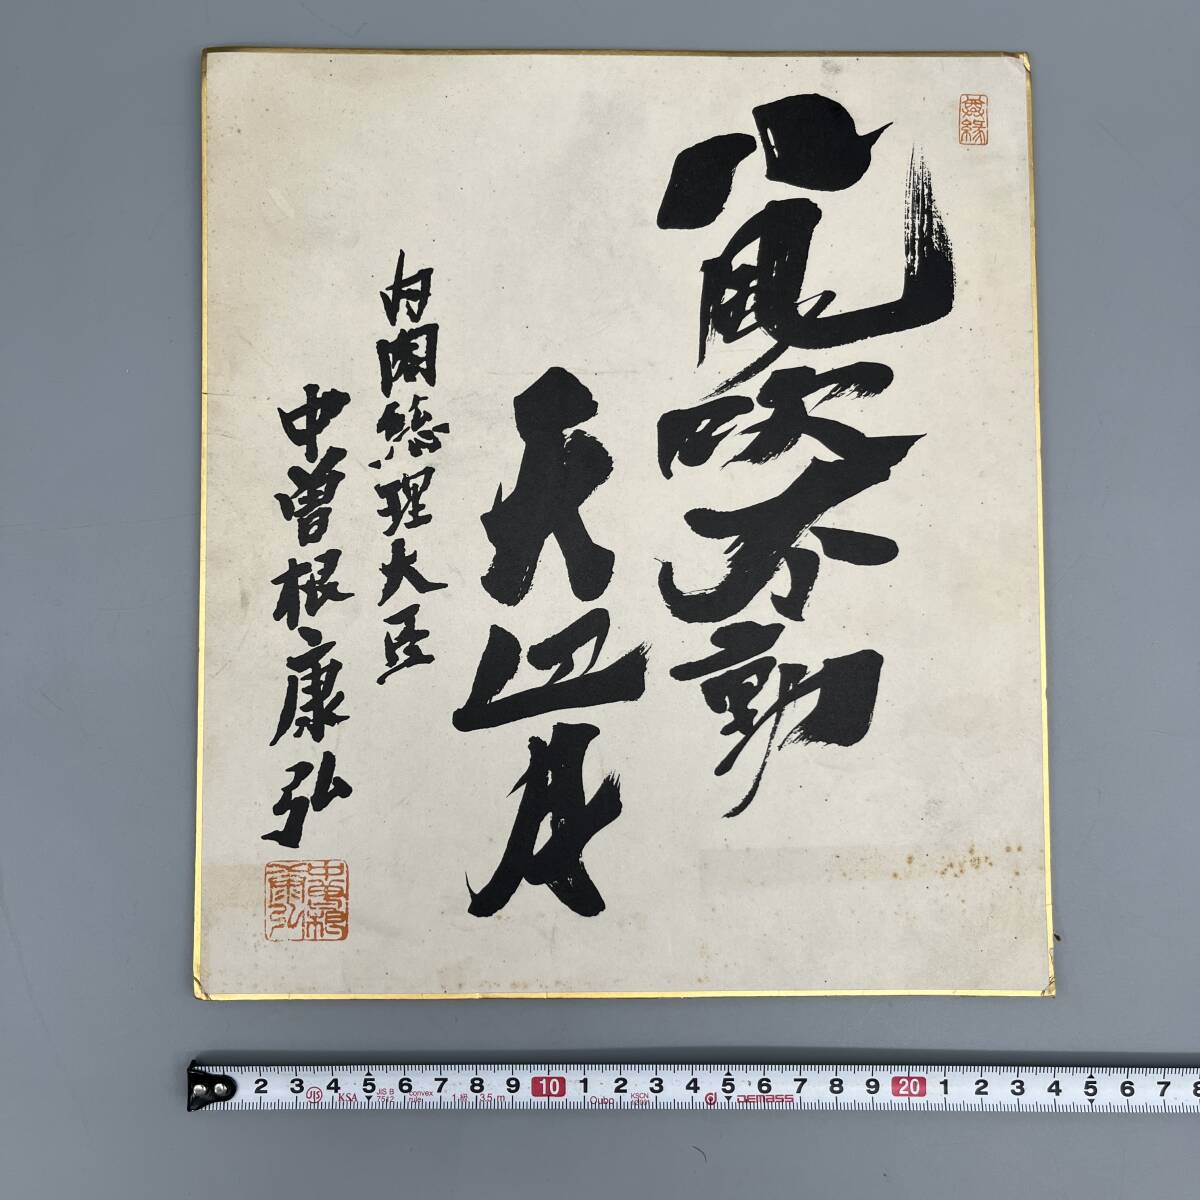 無縁
八風吹不動
天辺月
内閣総理大臣
中曽根康弘
中曽根康弘
2 3 4 5 6 7 8 9 10 1 2 3 4 5 6 7 8 9 20 1 2 3 4 5 6 7 8
JIS KSA JIS B 7512 convex rule 1級 3.5m Qubo KSCN DEMASS